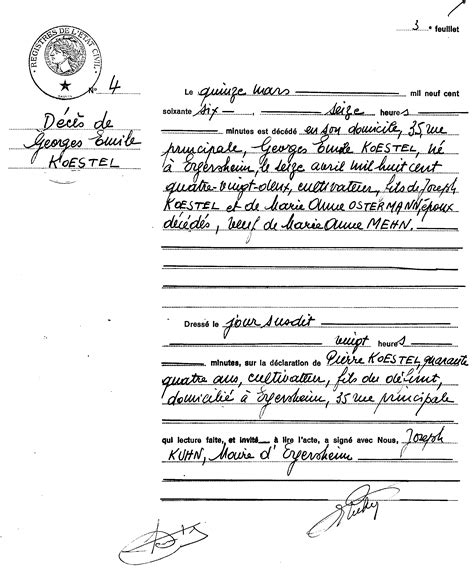 3 e feuillet
REGISTRES DE L'ETAT CIVIL
N° 4
Décès de
Georges Emile
KOESTEL
Le quinze mars mil neuf cent
soixante six seize heures
minutes est décédé en son domicile, 35 rue
principale, Georges Emile KOESTEL, né
à Ergersheim, le seize avril mil huit cent
quatre-vingt-deux, cultivateur, fils de Joseph
KOESTEL et de Marie Anne OSTERMANN, époux
décédés, veuf de Marie Anne MEHN.
Dressé le jour susdit
vingt heures
minutes, sur la déclaration de Pierre KOESTEL, quarante
quatre ans, cultivateur, fils du défunt,
domicilié à Ergersheim, 35 rue principale
qui lecture faite, et invité à lire l'acte, a signé avec Nous, Joseph
KUHN, Maire d'Ergersheim